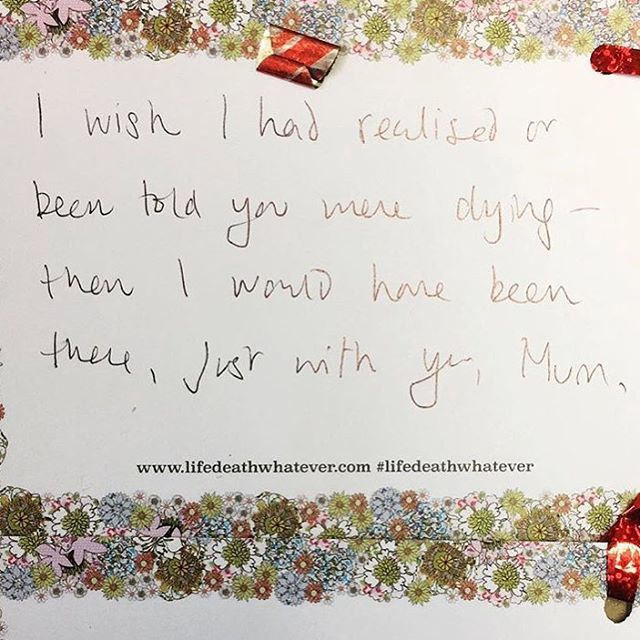 I wish I had realised or
been told you were dying –
then I would have been
there, just with you, Mum.
www.lifedeathwhatever.com #lifedeathwhatever